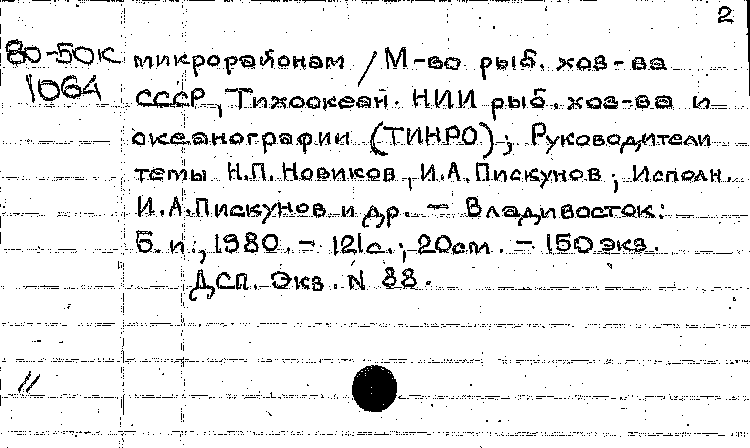 2
80-50к
1064
микрорайонам / М-во рыб. хоз-ва
СССР, Тихоокеан. НИИ рыб. хоз-ва и
океанографии (ТИНРО); Руководители
темы Н.П. Новиков, И.А. Пискунов; Исполн.
И.А. Пискунов и др. — Владивосток:
Б. и., 1980. — 121 с.; 20 см. — 150 экз.
ДСП. Экз. N 88.